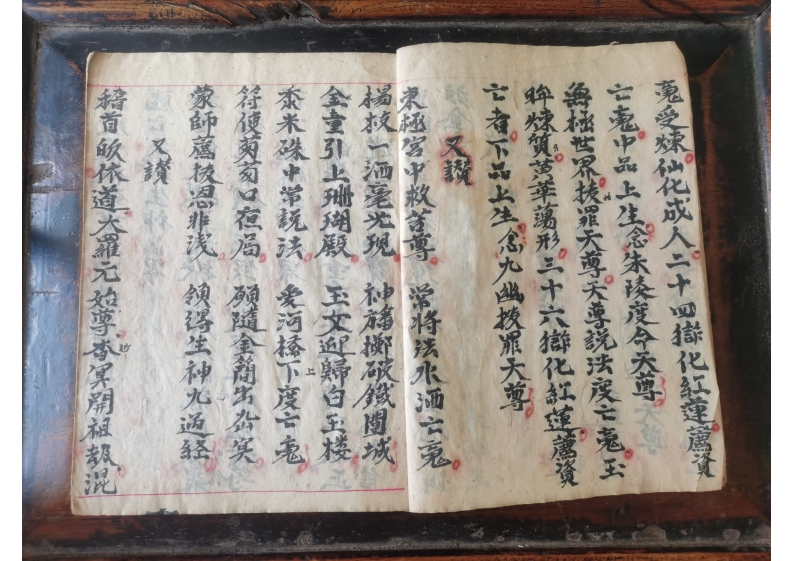 䰟受煉仙化成人二十四獄化紅蓮薦資
亡䰟中品上生念朱陵度命天尊
無極世界拔罪天尊天尊說法度亡䰟玉
眸煉質黃華蕩形三十六獄化紅蓮薦資
亡者下品上生念九幽拔罪天尊
又讚
東極宮中救苦尊 常將法水洒亡䰟
楊枝一洒毫光現 神旛擲破鐵圍城
金童引上珊瑚殿 玉女迎歸白玉楼
黍米珠中常說法 愛河橋下度亡䰟
符使 願隨金簡出幽冥
蒙師薦拔恩非浅 領得生神九過経
又讚
稽首皈依道大羅元始尊杳冥開祖刼混